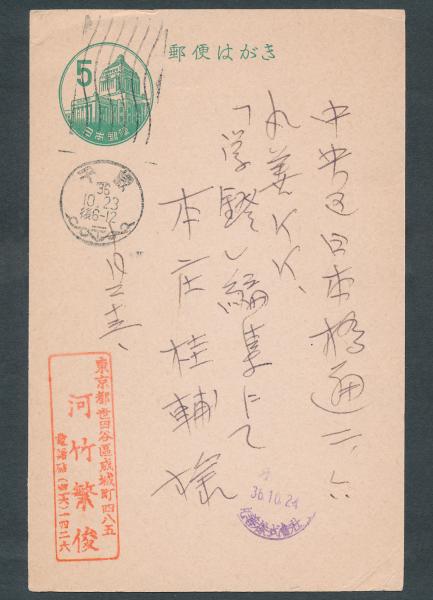 郵便はがき
5
日本郵便
千歳
36
10.23
後6-12
中央区日本橋通二ノ六
丸善KK、
「学鐙」編集にて
本庄桂輔様
十月二十三
東京都世田谷區成城町四八五
河竹繁俊
電話砧(四六)一四二六
36.10.24
丸善株式會社